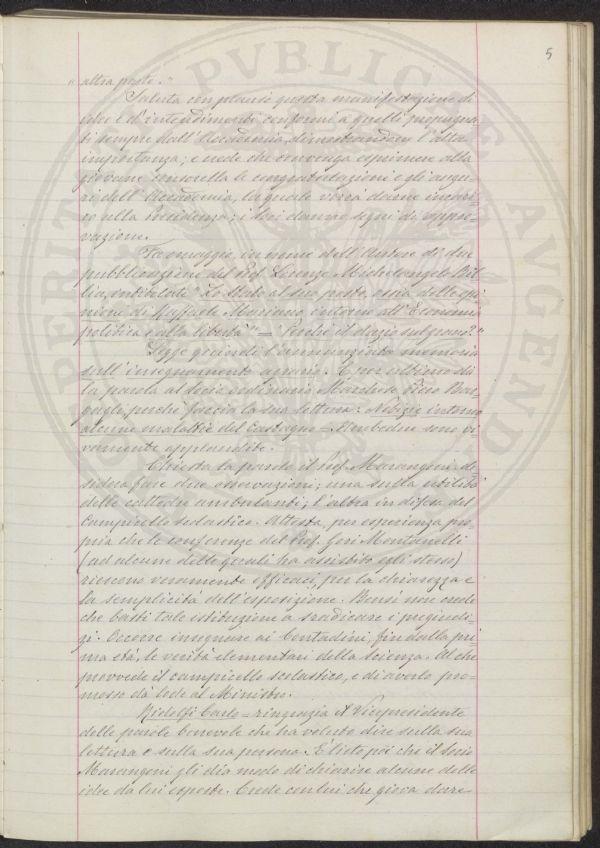 5
"altra parte."
Saluta con plauso questa manifestazione di
idee e d'intendimenti conformi a quelli propugna
ti sempre dall'Accademia, dimostrandone l'alta
importanza; e crede che convenga esprimere alla
giovane consorella le congratulazioni e gli augu
ri dell'Accademia, la quale vorrà darne incari
co alla Presidenza; i Soci danno segni di appro
vazione.
Fa omaggio, in nome dell'Autore di due
pubblicazioni del Prof. Lorenzo Michelangelo Bil
lia, intitolate "Lo Stato al suo posto, ossia delle opi
nioni di Raffaele Mariano intorno all'Economia
politica e alla libertà" — "Perchè il dazio sul grano?"
Legge quindi l'annunziata memoria
sull'insegnamento agrario. E poi cediamo di
la parola al Socio ordinario Marchese Piero Bar
gagli perchè faccia la sua lettura: Notizie intorno
alcune malattie del Castagno — Ambedue sono vi
vamente applaudite.
Chiesta la parola il Prof. Marangoni de
sidera fare due osservazioni; una sulla utilità
delle cattedre ambulanti; l'altra in difesa del
Campicello scolastico. Attesta, per esperienza pro
pria che le conferenze del Prof. Geri Montanelli
(ad alcune delle quali ha assistito egli stesso)
riescono veramente efficaci, per la chiarezza e
la semplicità dell'esposizione. Bensì non crede
che basti tale istituzione a sradicare i pregiudi
zi. Occorre insegnare ai Contadini, fin dalla pri
ma età, le verità elementari della scienza. Al che
provvede il campicello scolastico, e di averlo pro=
mosso dà lode al Ministro.
Ridolfi Carlo = ringrazia il Vicepresidente
delle parole benevole che ha voluto dire sulla sua
lettura e sulla sua persona. È lieto poi che il Socio
Marangoni gli dia modo di chiarire alcune delle
idee da lui esposte. Crede con lui che giova dare
PUBLICAE
AUGENDAE
PROSPERITATI